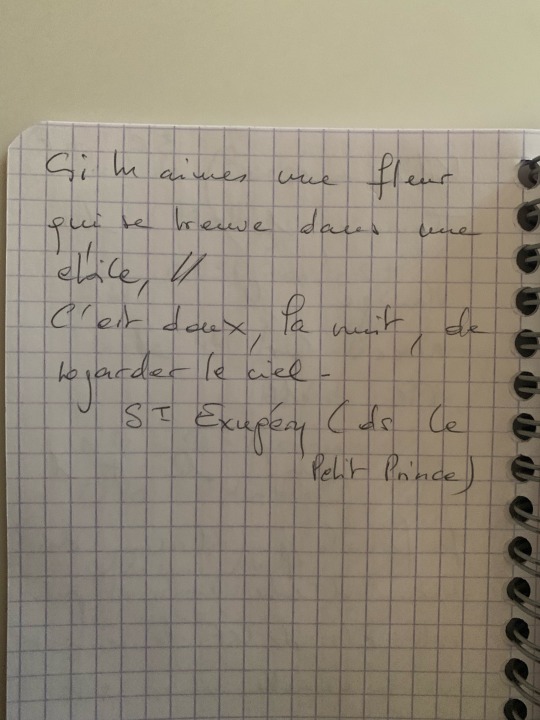 Si tu aimes une fleur
qui se trouve dans une
étoile, //
C'est doux, la nuit, de
regarder le ciel -
ST Exupéry (ds le
Petit Prince)